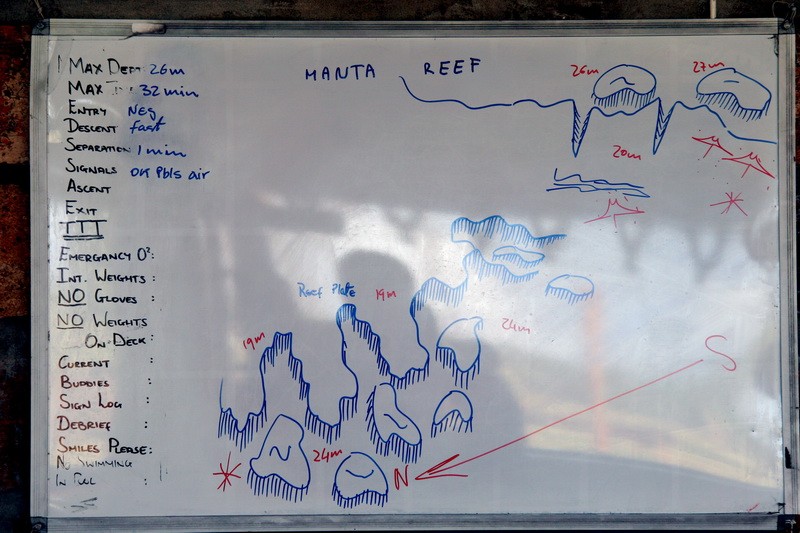 MAX DEPT 26m
MAX 32 min
ENTRY Neg
DESCENT fast
SEPARATION 1 min
SIGNALS OK Pbls air
ASCENT
EXIT
III
EMERGANCY O²:
INT. WEIGHTS:
NO GLOVES :
NO WEIGHTS
ON DECK:
CURRENT :
BUDDIES :
SIGN LOG :
DEBRIEF :
SMILES PLEASE:
NO SWIMMING
IN POOL :
MANTA REEF
26m
27m
20m
Reef Plate
19m
19m
24m
S
24m
N